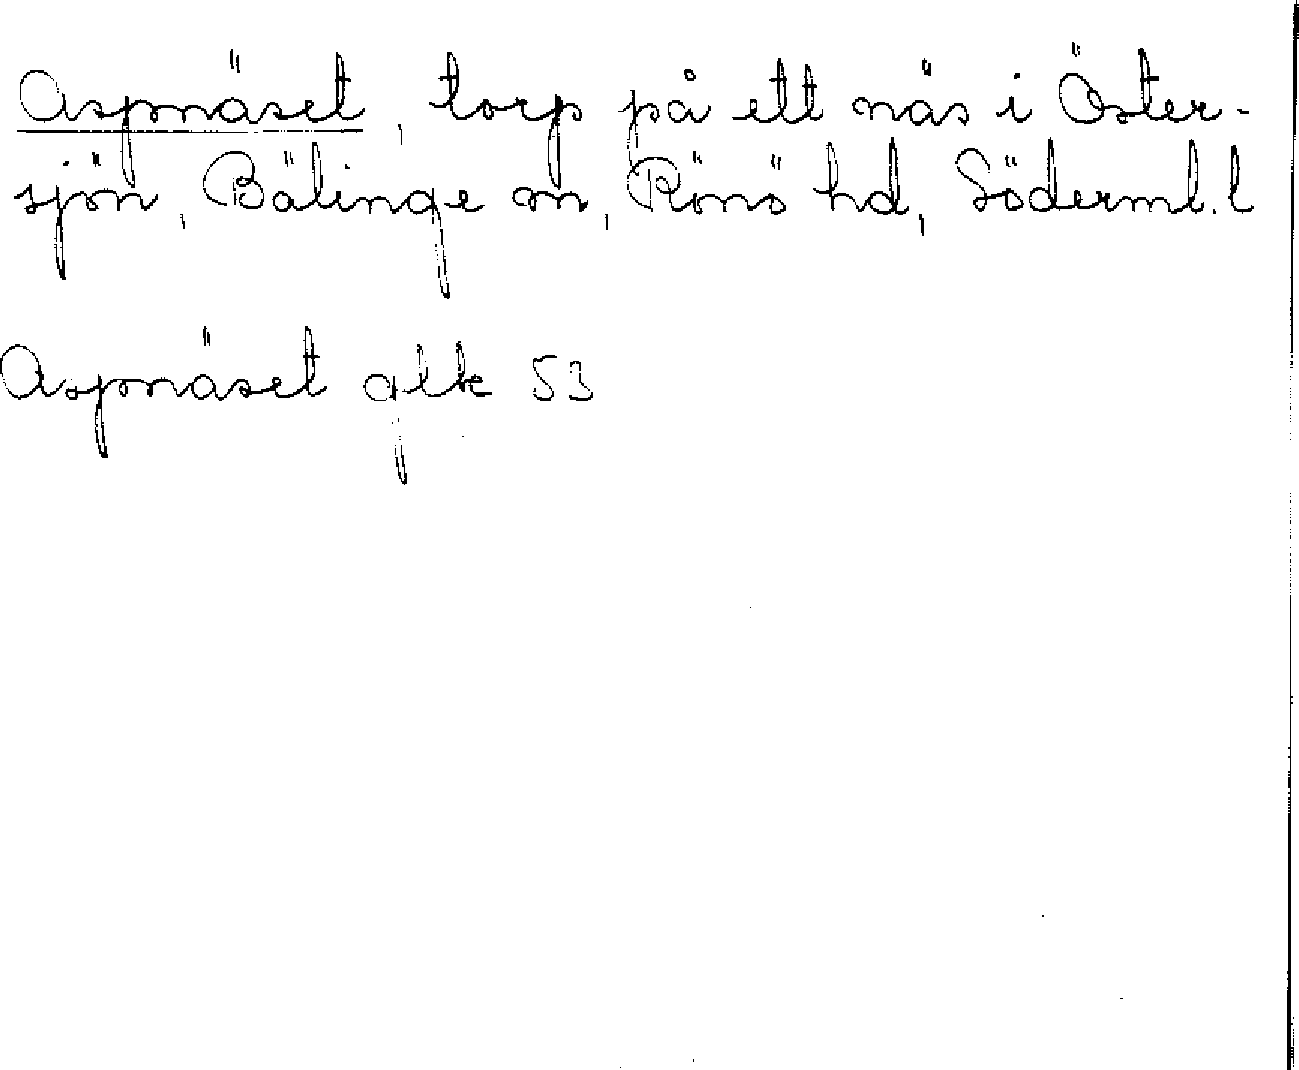 Aspnäset, torp på ett näs i Öster-
sjön, Bälinge sn, Rönö hd, Söderml. l
Aspnäset glk 53